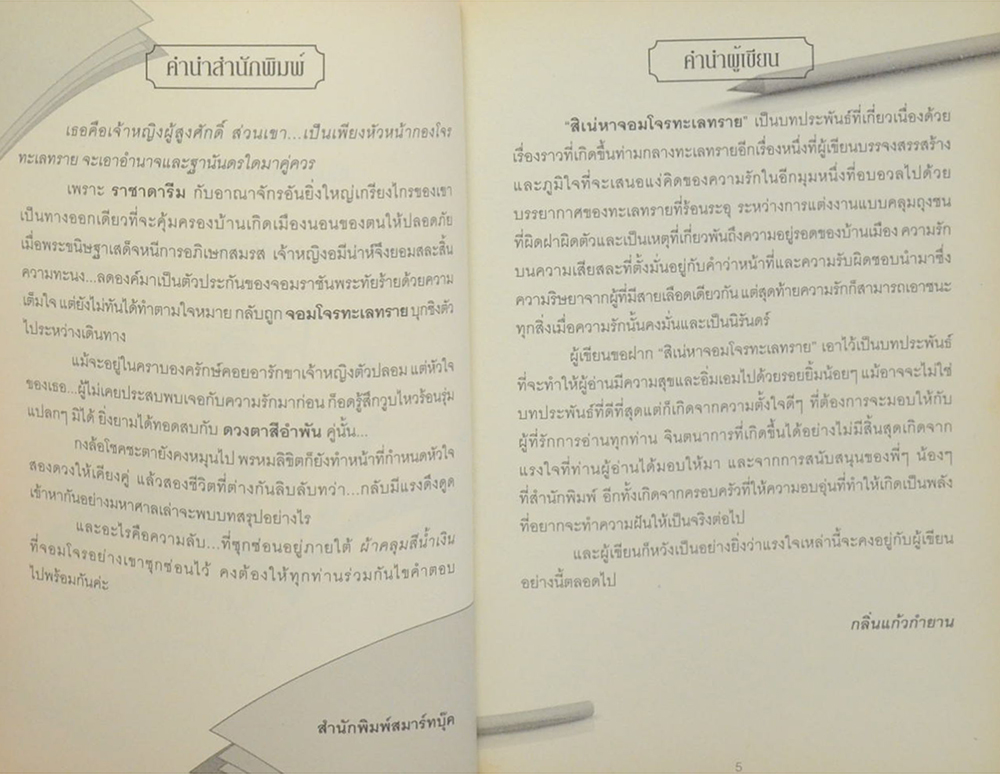 คำนำสำนักพิมพ์
เธอคือเจ้าหญิงผู้สูงศักดิ์ ส่วนเขา...เป็นเพียงหัวหน้ากองโจร
ทะเลทราย จะเอาอำนาจและฐานันดรใดมาคู่ควร
เพราะ ราชาดารีม กับอาณาจักรอันยิ่งใหญ่เกรียงไกรของเขา
เป็นทางออกเดียวที่จะคุ้มครองบ้านเกิดเมืองนอนของตนให้ปลอดภัย
เมื่อพระขนิษฐาเสด็จหนีการอภิเษกสมรส เจ้าหญิงอมีน่าห์จึงยอมสละสิ้น
ความทะนง...ลดองค์มาเป็นตัวประกันของจอมราชันพระทัยร้ายด้วยความ
เต็มใจ แต่ยังไม่ทันได้ทำตามใจหมาย กลับถูก จอมโจรทะเลทราย บุกชิงตัว
ไประหว่างเดินทาง
แม้จะอยู่ในคราบองครักษ์คอยอารักขาเจ้าหญิงตัวปลอม แต่หัวใจ
ของเธอ...ผู้ไม่เคยประสบพบเจอกับความรักมาก่อน ก็อดรู้สึกวูบไหวร้อนรุ่ม
แปลกๆ มิได้ ยิ่งยามได้ทอดสบกับ ดวงตาสีอำพัน คู่นั้น...
กงล้อโชคชะตายังคงหมุนไป พรหมลิขิตก็ยังทำหน้าที่กำหนดหัวใจ
สองดวงให้เคียงคู่ แล้วสองชีวิตที่ต่างกันลิบลับทว่า...กลับมีแรงดึงดูด
เข้าหากันอย่างมหาศาลเล่าจะพบบทสรุปอย่างไร
และอะไรคือความลับ...ที่ซุกซ่อนอยู่ภายใต้ ผ้าคลุมสีน้ำเงิน
ที่จอมโจรอย่างเขาซุกซ่อนไว้ คงต้องให้ทุกท่านร่วมกันไขคำตอบ
ไปพร้อมกันค่ะ
สำนักพิมพ์สมาร์ทบุ๊ค
คำนำผู้เขียน
"สิเน่หาจอมโจรทะเลทราย" เป็นบทประพันธ์ที่เกี่ยวเนื่องด้วย
เรื่องราวที่เกิดขึ้นท่ามกลางทะเลทรายอีกเรื่องหนึ่งที่ผู้เขียนบรรจงสรรสร้าง
และภูมิใจที่จะเสนอแง่คิดของความรักในอีกมุมหนึ่งที่อบอวลไปด้วย
บรรยากาศของทะเลทรายที่ร้อนระอุ ระหว่างการแต่งงานแบบคลุมถุงชน
ที่ผิดฝาผิดตัวและเป็นเหตุที่เกี่ยวพันถึงความอยู่รอดของบ้านเมือง ความรัก
บนความเสียสละที่ตั้งมั่นอยู่กับคำว่าหน้าที่และความรับผิดชอบนำมาซึ่ง
ความริษยาจากผู้ที่มีสายเลือดเดียวกัน แต่สุดท้ายความรักก็สามารถเอาชนะ
ทุกสิ่งเมื่อความรักนั้นคงมั่นและเป็นนิรันดร์
ผู้เขียนขอฝาก "สิเน่หาจอมโจรทะเลทราย" เอาไว้เป็นบทประพันธ์
ที่จะทำให้ผู้อ่านมีความสุขและอิ่มเอมไปด้วยรอยยิ้มน้อยๆ แม้อาจจะไม่ใช่
บทประพันธ์ที่ดีที่สุดแต่ก็เกิดจากความตั้งใจดีๆ ที่ต้องการจะมอบให้กับ
ผู้ที่รักการอ่านทุกท่าน จินตนาการที่เกิดขึ้นได้อย่างไม่มีสิ้นสุดเกิดจาก
แรงใจที่ท่านผู้อ่านได้มอบให้มา และจากการสนับสนุนของพี่ๆ น้องๆ
ที่สำนักพิมพ์ อีกทั้งเกิดจากครอบครัวที่ให้ความอบอุ่นที่ทำให้เกิดเป็นพลัง
ที่อยากจะทำความฝันให้เป็นจริงต่อไป
และผู้เขียนก็หวังเป็นอย่างยิ่งว่าแรงใจเหล่านี้จะคงอยู่กับผู้เขียน
อย่างนี้ตลอดไป
กลิ่นแก้วกำยาน
5